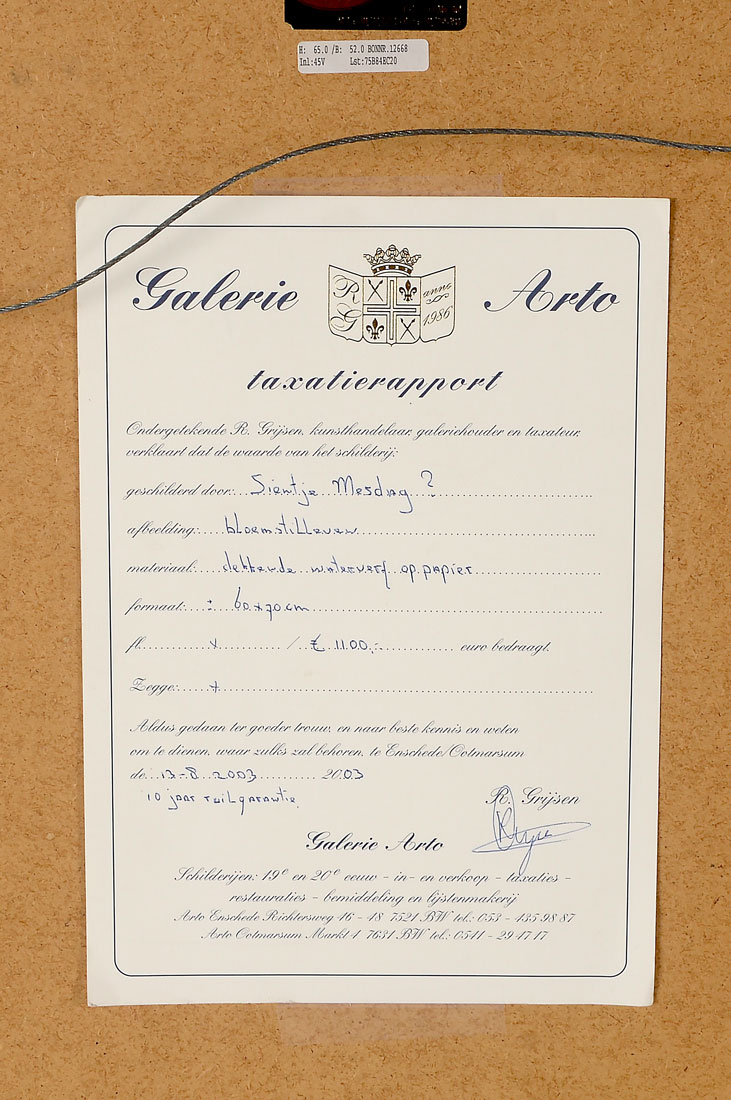 H: 65.0 /B: 52.0 BONNR.12668
Inl:45V Lst:75B84BC20
Galerie Arto
R G anno 1986
taxatierapport
Ondergetekende R. Grijsen, kunsthandelaar, galeriehouder en taxateur,
verklaart dat de waarde van het schilderij:
geschilderd door: Sientje Mesdag ?
afbeelding: bloemstilleven
materiaal: dekkende waterverf op papier
formaat: ± 60x70cm
fl. x / € 1100,- euro bedraagt.
Zegge: x
Aldus gedaan ter goeder trouw, en naar beste kennis en weten
om te dienen, waar zulks zal behoren, te Enschede/Ootmarsum
de 13-8-2003 2003
10 jaar ruilgarantie
R. Grijsen
Galerie Arto
Schilderijen: 19e en 20e eeuw - in- en verkoop - taxaties -
restauraties - bemiddeling en lijstenmakerij
Arto Enschede Richtersweg 16 - 18 7521 BW tel.: 053 - 435 98 87
Arto Ootmarsum Markt 1 7631 BW tel.: 0541 - 29 17 17